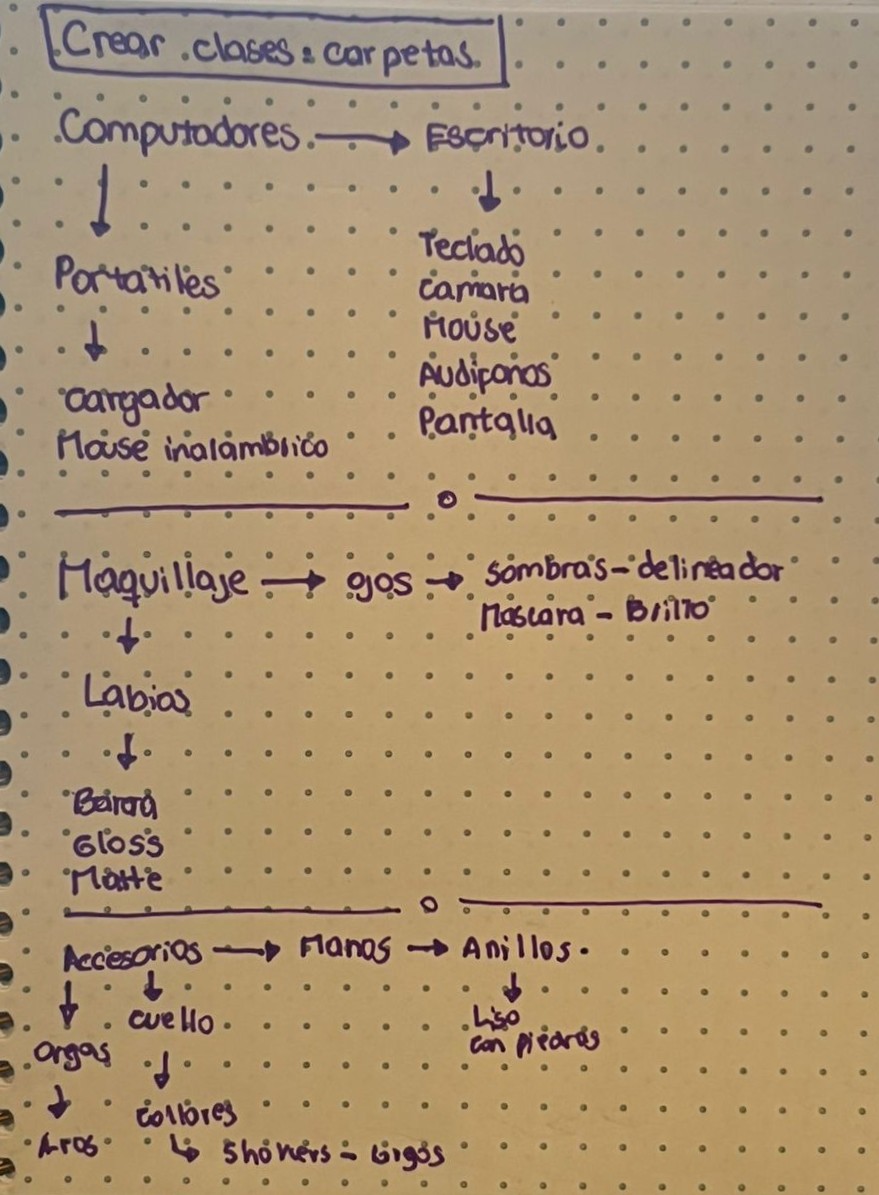 Crear clases = carpetas.
Computadores. → Escritorio.
Portatiles
Cargador
Mouse inalambrico
Teclado
Camara
Mouse
Audifonos
Pantalla
Maquillaje → ojos → Sombras - delineador
Mascara - Brillo
Labios
Barra
Gloss
Matte
Accesorios → Manos → Anillos.
Liso
Con piedras
Cuello
Collares
Orejas
Aros